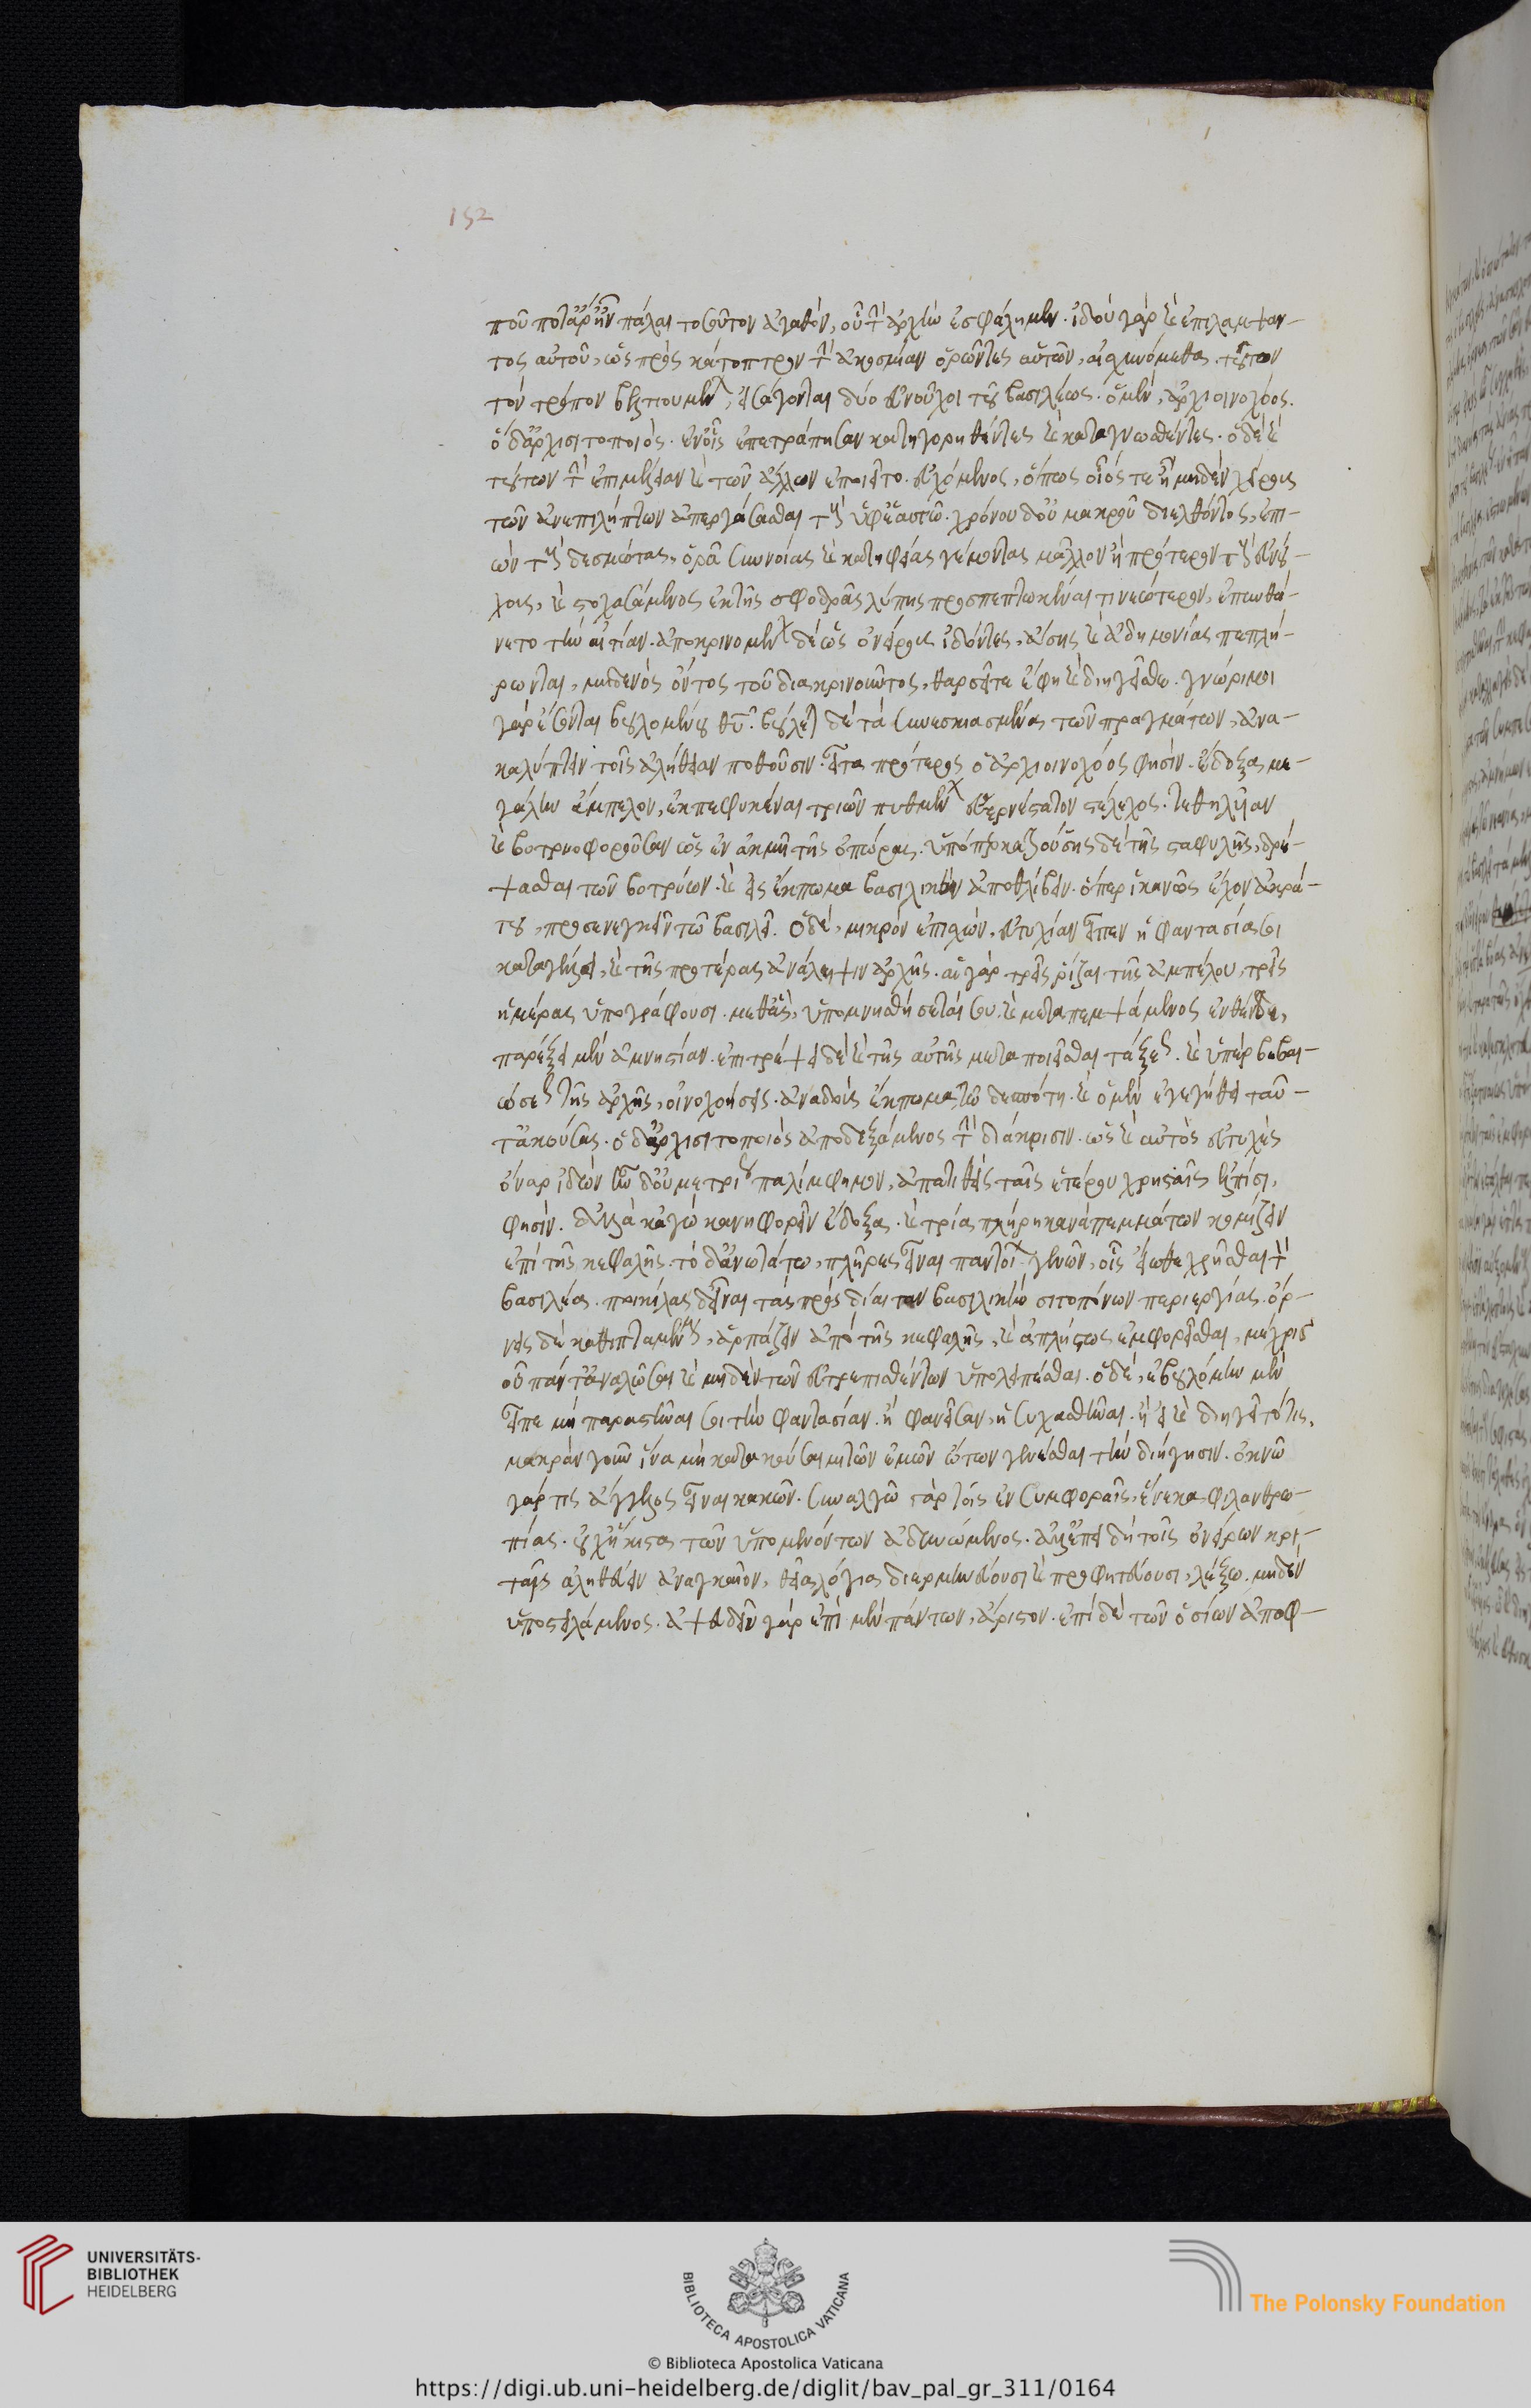 152
ποῦ ποτ' ἄρ' ἦν πάλαι τοσοῦτον ἀγαθόν, οὗ τὴν ἀρχὴν ἐσφάλημεν. ἰδοὺ γὰρ καὶ ἐπιλάμψαν-
τος αὐτοῦ, ὡς πρὸς κάτοπτρον τὴν ἀκοσμίαν ὁρῶντες αὑτῶν, αἰσχυνόμεθα. τοῦτον
τὸν τρόπον βελτιουμένων, εἰσάγονται δύο εὐνοῦχοι τοῦ βασιλέως. ὁ μὲν, ἀρχιοινοχόος.
ὁ δ' ἀρχισιτοποιός. ἐν οἷς ἐπετράπησαν κατηγορηθέντες καὶ καταγνωσθέντες. ὁ δὲ καὶ
τούτων τὴν ἐπιμέλειαν καὶ τῶν ἄλλων ἐποιεῖτο. εὐχόμενος, ὅπως οἷός τε ᾖ μηδὲν χείρους
τῶν ἀνεπιλήπτων ἀπεργάσασθαι τοὺς ὑφ' ἑαυτῷ. χρόνου δ' οὐ μακροῦ διελθόντος, ἐπι-
ὼν τοὺς δεσμώτας, ὁρᾷ συννοίας καὶ κατηφείας γέμοντας μᾶλλον ἢ πρότερον τοὺς εὐνού-
χους, καὶ στοχασάμενος ἐκ τῆς σφοδρᾶς λύπης προσπεπτωκέναι τι νεώτερον, ἐπυνθά-
νετο τὴν αἰτίαν. ἀποκρινομένων δὲ ὡς ὀνείρους ἰδόντες, ἄσης καὶ ἀδημονίας πεπλή-
ρωνται, μηδενὸς ὄντος τοῦ διακρινοῦντος, θαρσεῖτε ἔφη καὶ διηγεῖσθε. γνώριμοι
γὰρ ἔσονται βουλομένου θυ. βούλεται δὲ τὰ συνεσκιασμένα τῶν πραγμάτων, ἀνα-
καλύπτειν τοῖς ἀλήθειαν ποθοῦσιν. εἶτα πρότερος ὁ ἀρχιοινοχόος φησίν. ἔδοξα με-
γάλην ἄμπελον, ἐκπεφυκέναι τριῶν πυθμένων εὐερνέστατον στέλεχος. τεθηλυῖαν
καὶ βοτρυοφοροῦσαν ὡς ἐν ἀκμῇ τῆς ὀπώρας. ὑποπερκαζούσης δὲ τῆς σταφυλῆς, δρέ-
ψασθαι τῶν βοτρύων. καὶ εἰς ἔκπωμα βασιλικὸν ἀποθλίβειν. ὅπερ ἱκανῶς ἔχον ἀκρά-
του, προσενεγκεῖν τῷ βασιλεῖ. ὁ δὲ, μικρὸν ἐπισχών, εὐτυχίαν εἶπεν ἡ φαντασία σοι
καταγγέλλει, καὶ τῆς προτέρας ἀνάληψιν ἀρχῆς. αἱ γὰρ τρεῖς ῥίζαι τῆς ἀμπέλου, τρεῖς
ἡμέρας ὑπογράφουσι. μεθ' ἃς, ὑπομνησθήσεταί σου. καὶ μεταπεμψάμενος ἐνθένδε,
παρέξει μὲν ἀμνηστίαν. ἐπιτρέψει δὲ καὶ τῆς αὐτῆς μεταποιεῖσθαι τάξεως. καὶ ὑπὲρ βεβαι-
ώσεως τῆς ἀρχῆς, οἰνοχοήσεις. ἀναδοὺς ἔκπωμα τῷ δεσπότῃ. καὶ ὁ μὲν ἐγεγήθει ταῦ-
τ' ἀκούσας. ὁ δ' ἀρχισιτοποιὸς ἀποδεξάμενος τὴν διάκρισιν. ὡς καὶ αὐτὸς εὐτυχὲς
ὄναρ ἰδὼν ἦν δ' οὐ μετρίως παλίμφημον, ἀπατηθεὶς ταῖς ἑτέρου χρησταῖς ἐλπίσι,
φησίν. ἀλλὰ κἀγὼ κανηφορεῖν ἔδοξα. καὶ τρία πλήρη κανᾶ πεμμάτων κομίζειν
ἐπὶ τῆς κεφαλῆς. τὸ δ' ἀνωτάτω, πλῆρες εἶναι παντοίων γενῶν, οἷς εἴωθε χρῆσθαι τὸν
βασιλέα. ποικίλας δ' εἶναι τὰς πρὸς δίαιταν βασιλικὴν σιτοπόνων περιεργίας. ὄρ-
νεις δὲ καθιπταμένους, ἁρπάζειν ἀπὸ τῆς κεφαλῆς, καὶ ἀπλήστως ἐμφορεῖσθαι, μέχρις
οὗ πάντ' ἀναλῶσαι καὶ μηδὲν τῶν εὐτρεπισθέντων ὑπολείπεσθαι. ὁ δέ, ἐβουλόμην μὲν
εἶπε μὴ παραστῆναί σοι τὴν φαντασίαν. ἢ φανεῖσαν, ἡσυχασθῆναι. ἢ εἰ καὶ διηγεῖτό τις,
μακρὰν γοῦν ἵνα μὴ κατακούσαιμι τῶν ἐμῶν ὤτων γενέσθαι τὴν διήγησιν. ὀκνῶ
γάρ τις ἄγγελος εἶναι κακῶν. συναλγῶ γὰρ τοῖς ἐν συμφοραῖς, ἕνεκα φιλανθρω-
πίας. οὐχ ἥκιστα τῶν ὑπομενόντων ὀδυνώμενος. ἀλλ' ἐπεὶ δὴ τοῖς ὀνείρων κρι-
ταῖς ἀληθεύειν ἀναγκαῖον, θεῖα λόγια διερμηνεύουσι καὶ προφητεύουσι, λέξω. μηδὲν
ὑποστειλάμενος. ἀψευδεῖν γὰρ ἐπὶ μὲν πάντων, ἄριστον. ἐπὶ δὲ τῶν ὁσίων ἀποφ-
UNIVERSITÄTS-
BIBLIOTHEK
HEIDELBERG
BIBLIOTECA APOSTOLICA VATICANA
The Polonsky Foundation
© Biblioteca Apostolica Vaticana
https://digi.ub.uni-heidelberg.de/diglit/bav_pal_gr_311/0164